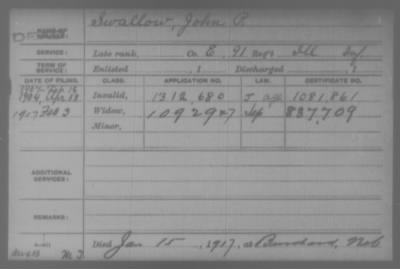 Swallow, John P.
NAME OF SOLDIER:
SERVICE: Late rank, Co. E, 91 Reg't Ill Inf
TERM OF SERVICE: Enlisted , 1 Discharged , 1
DATE OF FILING. CLASS. APPLICATION NO. LAW. CERTIFICATE NO.
1904, Apr 18 Invalid, 1312,680 1081,861
1917 Feb 3 Widow, 1092947 837,709
Minor,
ADDITIONAL SERVICES:
REMARKS:
Died Jan 15, 1917, at Burchard, Neb